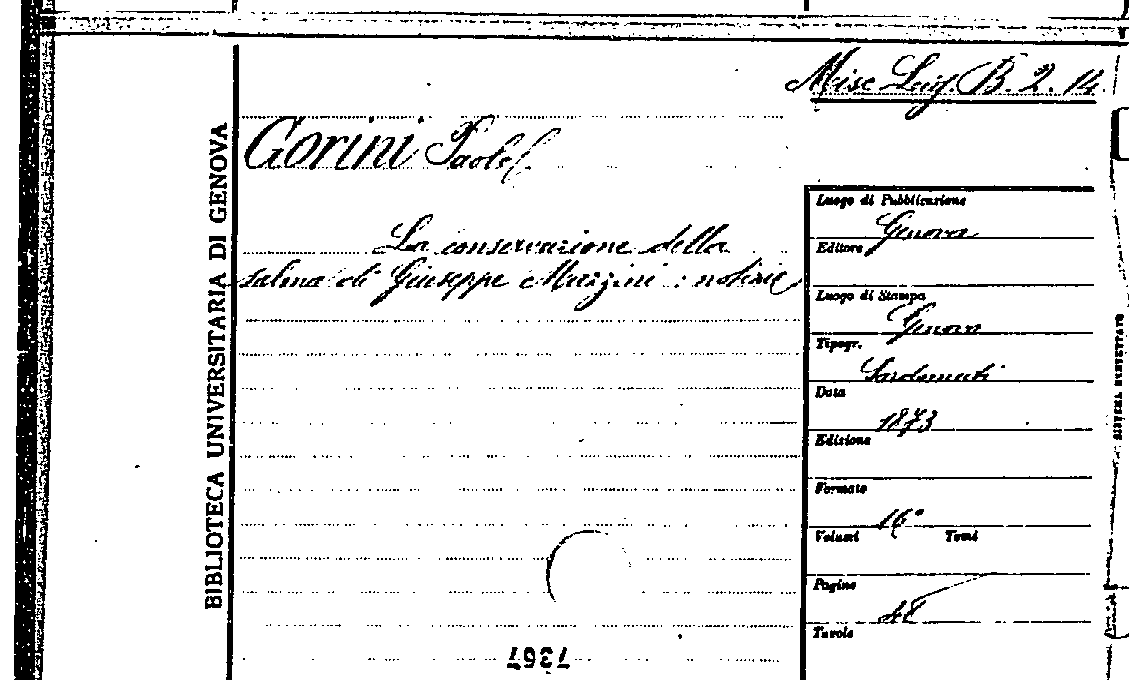 Misc Lig. B. 2. 14.
Gorini Paolo
La conservazione della
salma di Giuseppe Mazzini : notizie
BIBLIOTECA UNIVERSITARIA DI GENOVA
Luogo di Pubblicazione
Genova
Editore
Luogo di Stampa
Genova
Tipogr.
Sordomuti
Data
1873
Edizione
Formato
16°
Volumi Tomi
Pagine
48
Tavole
7367